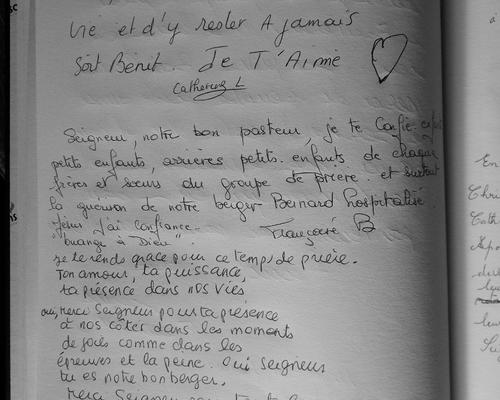 Vie et d'y rester A jamais
Soit Bénit. Je T'Aime
Catherine L
Seigneur, notre bon pasteur, je te confie enfants
petits enfants, arrières petits-enfants de chaque
frères et soeurs du groupe de prière. et surtout
la guérison de notre berger Bernard hospitalisé.
j'ai confiance.
Françoise B
"louange à Dieu".
je te rends grâce pour ce temps de prière.
Ton amour, ta puissance,
ta présence dans nos vies
oui, merci Seigneur pour ta présence
à nos côter dans les moments
de joies comme dans les
épreuves et la peine. Oui Seigneur
tu es notre bon berger.
Merci Seigneur